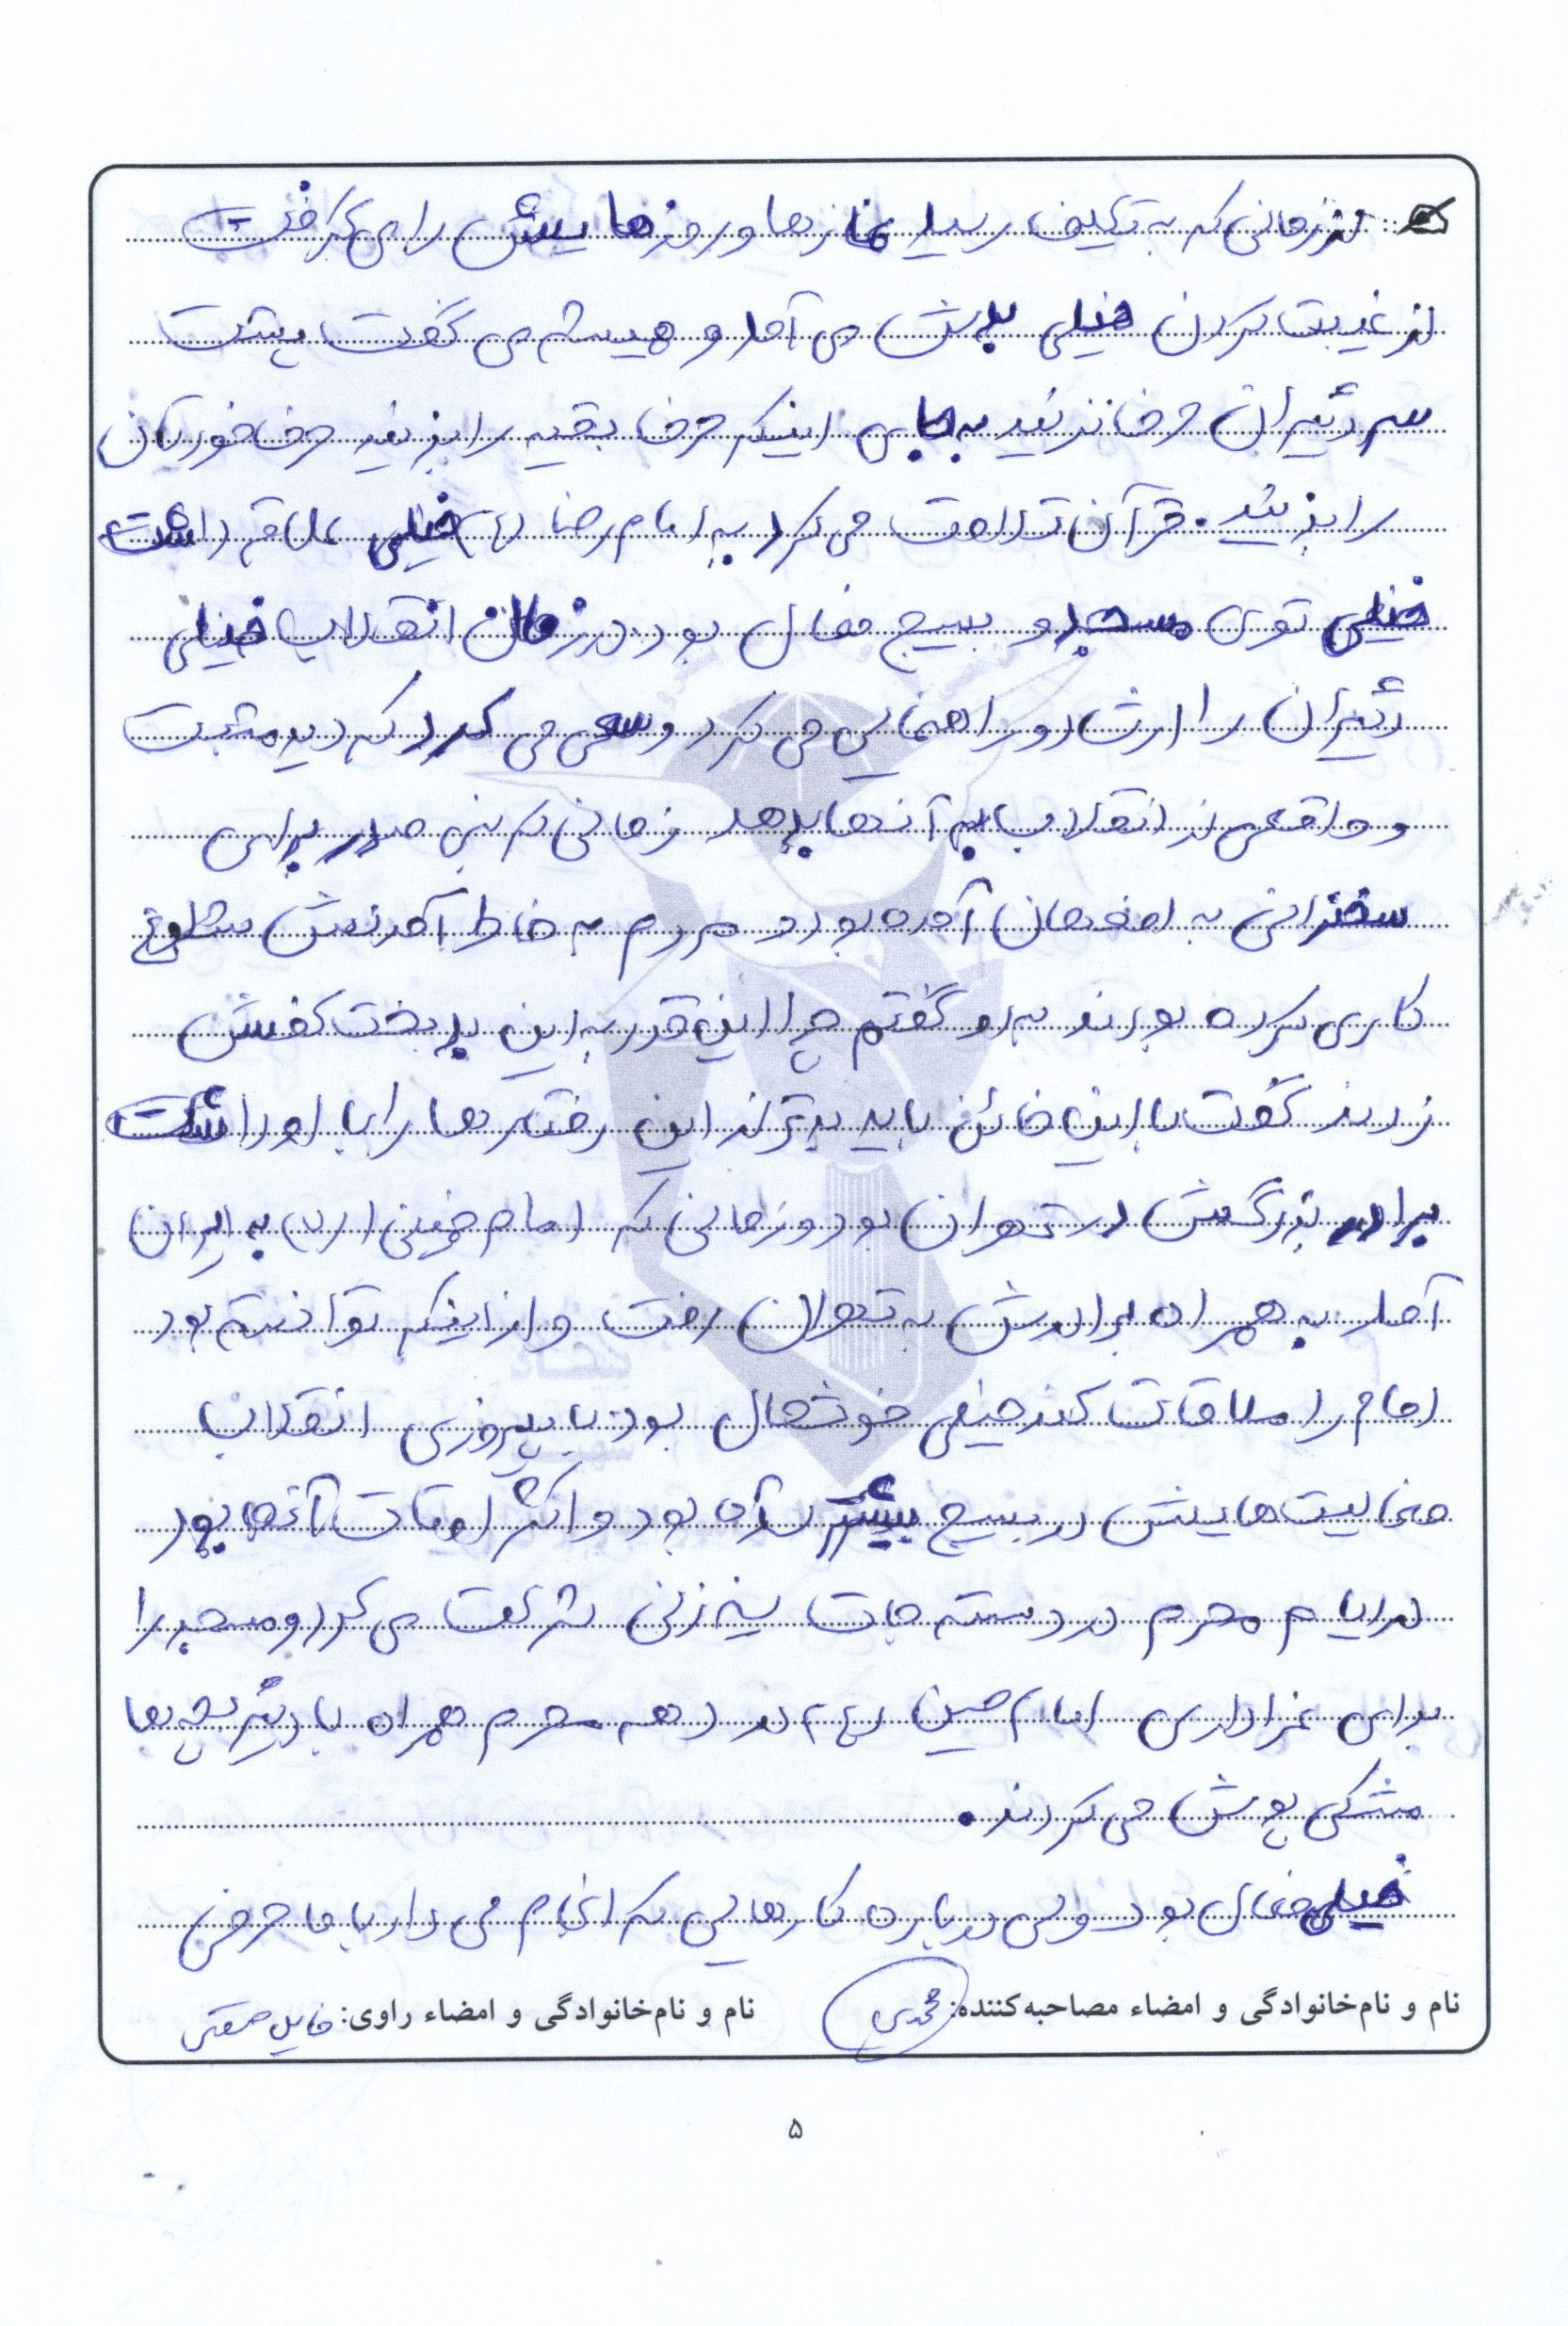 از زمانی که به تکلیف رسید نمازها و روزهایش را می گرفت
از غیبت کردن خیلی بدش می آمد و همیشه می گفت پشت
سر دیگران حرف نزنید به جای اینکه حرف بقیه را بزنید حرف خودتان
را بزنید. قرآن تلاوت می کرد به امام رضا (ع) خیلی علاقه داشت
خیلی توی مسجد و بسیج فعال بود در زمان انقلاب خیلی
دیگران را ارشاد و راهنمایی می کرد و سعی می کرد که دید مثبت
و واقعی از انقلاب به آنها بدهد زمانی که بنی صدر برای
سخنرانی به اصفهان آمده بود و مردم به خاطر آمدنش شلوغ
کاری کرده بودند به او گفتم چرا این قدر به این بدبخت کفش
زدند گفت با این خائن باید بدتر از این رفتارها را با او داشت
برادر بزرگش در تهران بود و زمانی که امام خمینی (ره) به ایران
آمد به همراه برادرش به تهران رفت و از اینکه توانسته بود
امام را ملاقات کند خیلی خوشحال بود با پیروزی انقلاب
فعالیت هایش در بسیج بیشتر شده بود و اکثر اوقات آنجا بود
در ایام محرم در دسته جات سینه زنی شرکت می کرد و مسجد را
برای عزاداری امام حسین (ع) در دهه محرم همراه با دیگر بچه ها
مشکی پوش می کردند.
خیلی فعال بود ولی درباره کارهایی که انجام می داد با ما حرفی
نام و نام‌خانوادگی و امضاء مصاحبه‌کننده: محمدی نام و نام‌خانوادگی و امضاء راوی:
۵